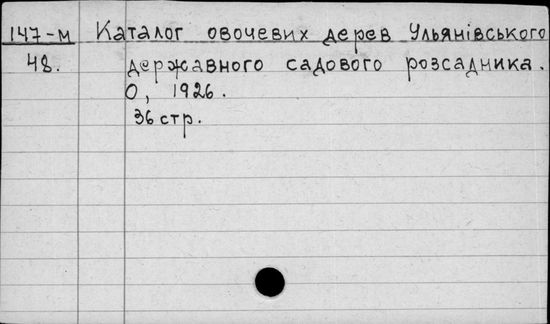 147-м Каталог овочевих дерев Ульянівського
48. державного садового розсадника.
О, 1926.
36 стр.